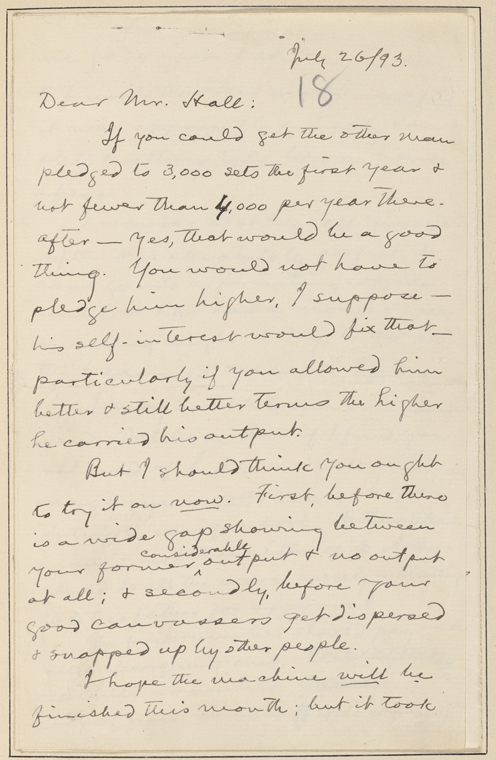 July 26/93.
18
Dear Mr. Hall:
If you could get the other man
pledged to 3,000 sets the first year &
not fewer than 4,000 per year there-
after — yes, that would be a good
thing. You would not have to
pledge him higher, I suppose —
his self-interest would fix that —
particularly if you allowed him
better & still better terms the higher
he carried his output.
But I should think you ought
to try it on now. First, before there
is a wide gap showing between
considerable
your former ^ output & no output
at all; & secondly, before your
good canvassers get dispersed
& snapped up by other people.
I hope the machine will be
finished this month; but it took